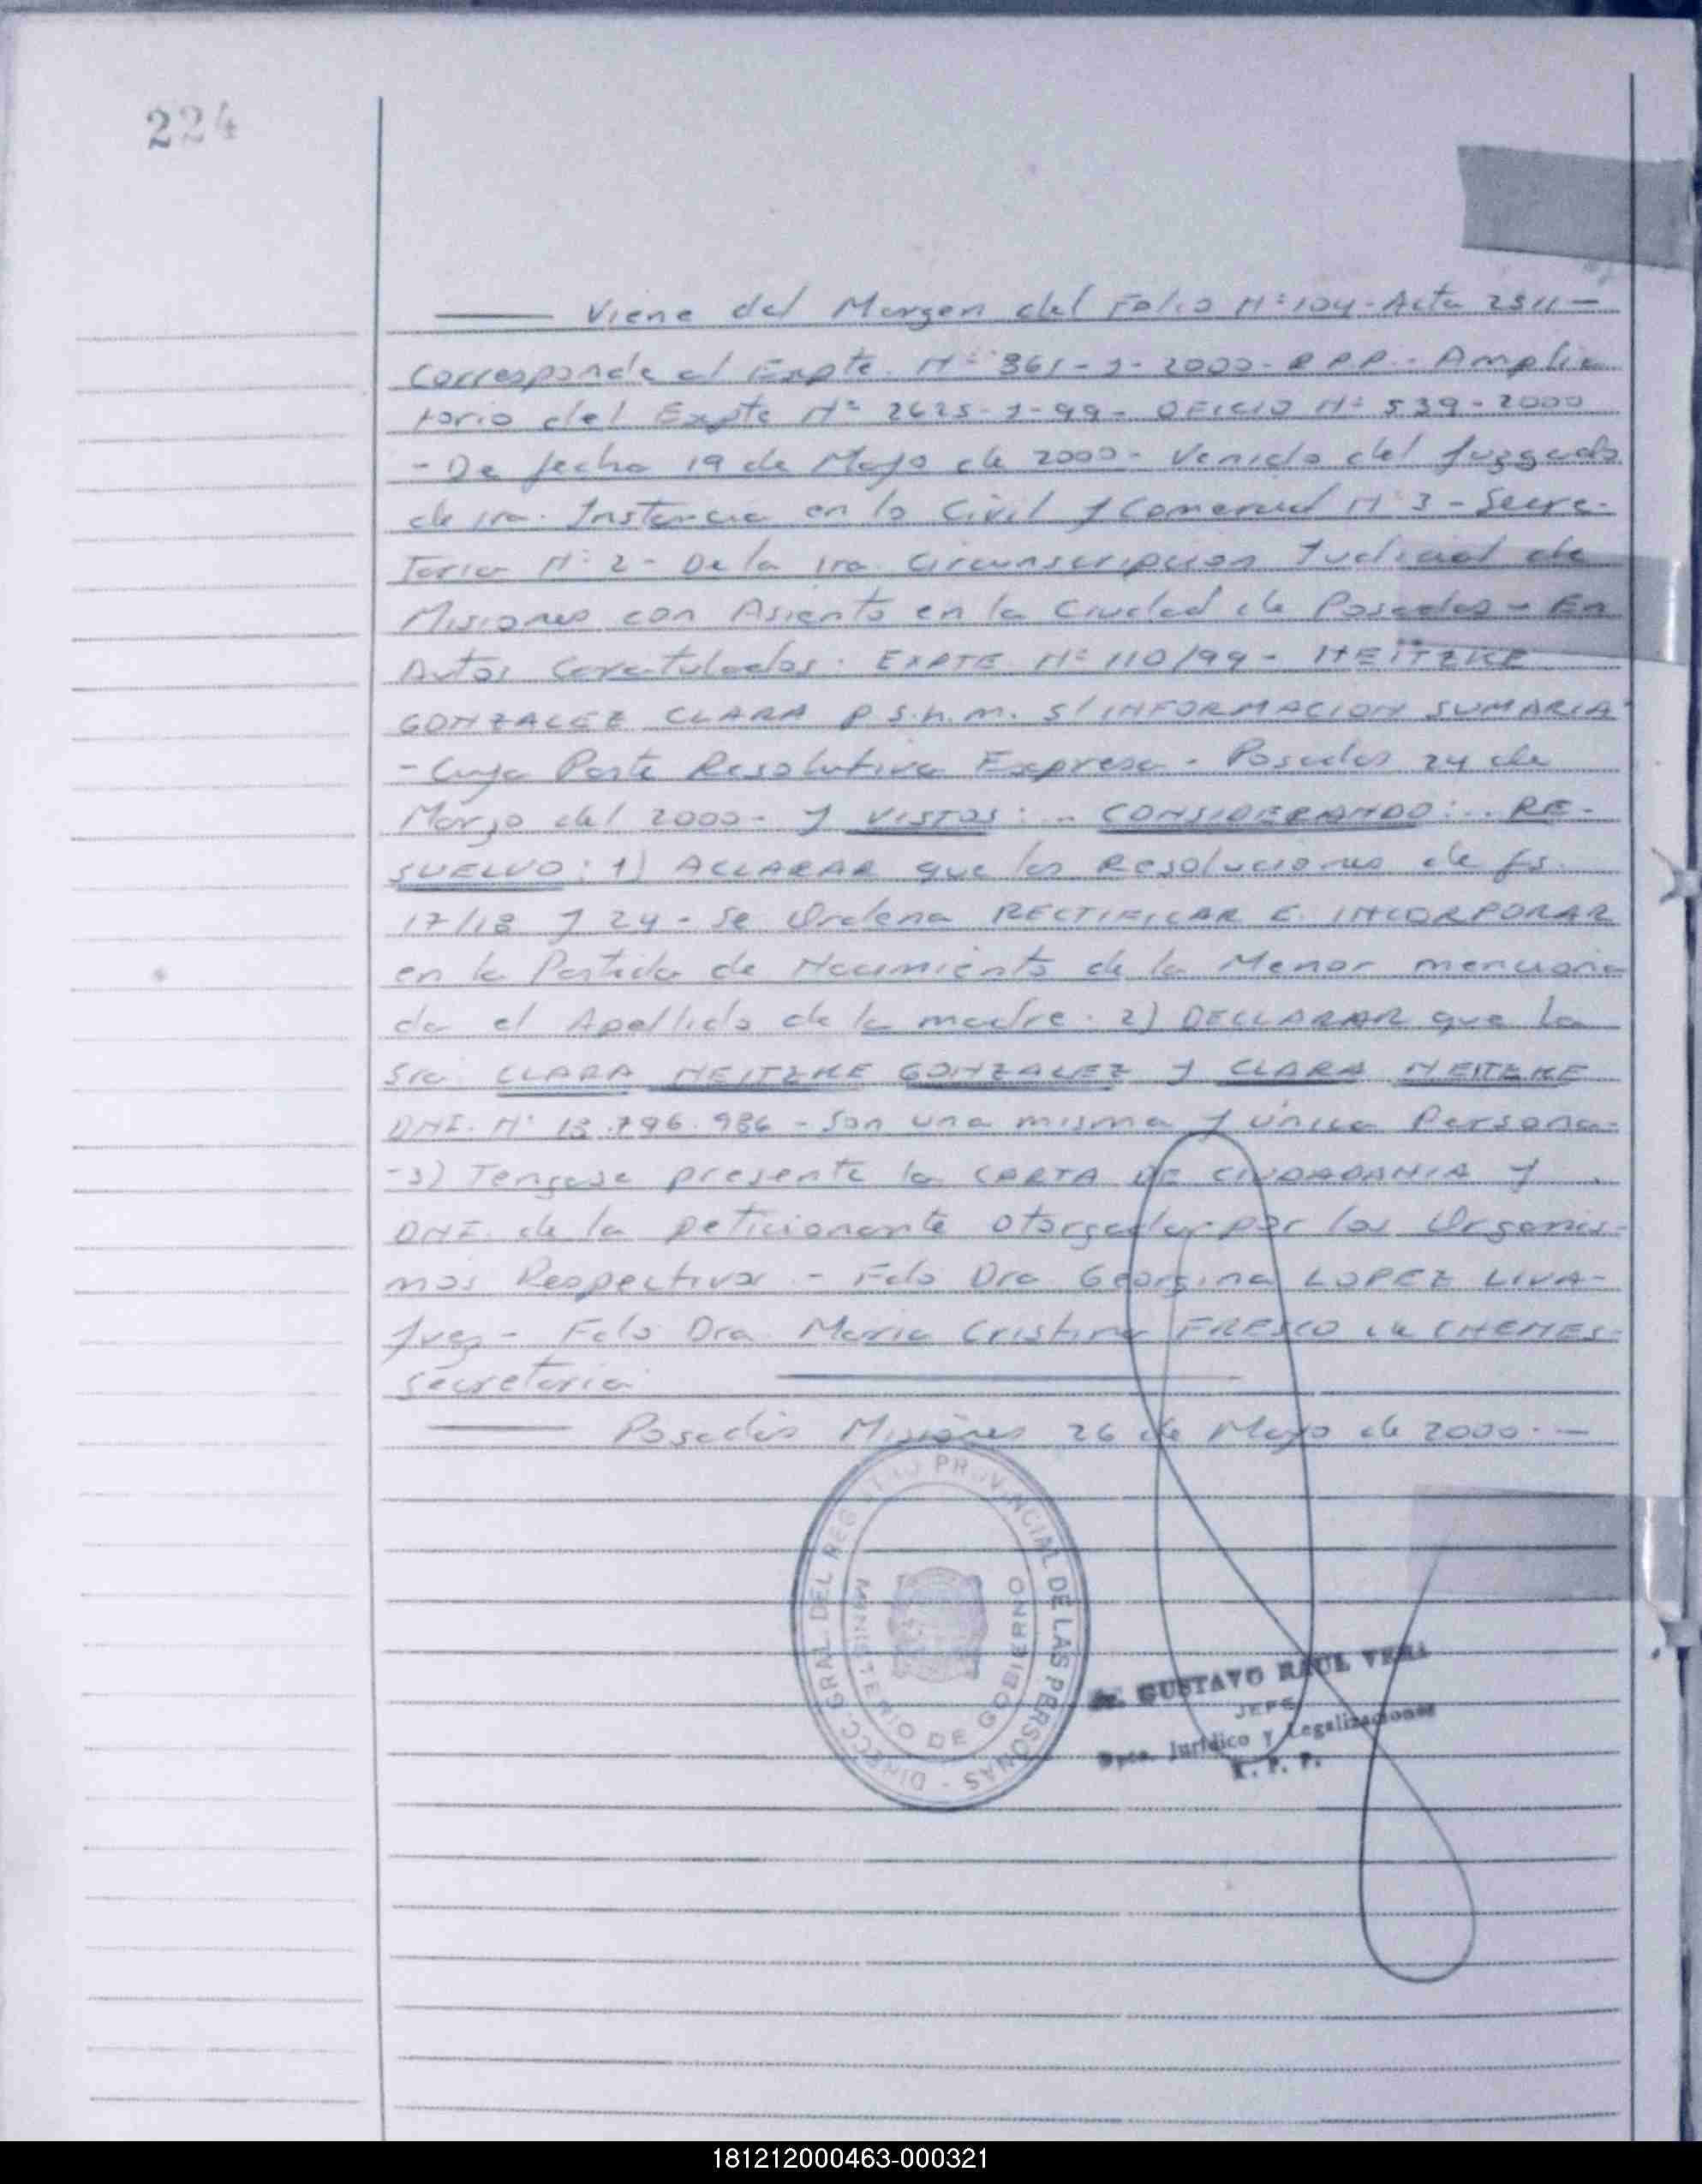 224
Viene del Margen del Folio Nº 104 - Acta 2511 -
Corresponde al Expte. Nº 361-J-2000- R.P.P. - Amplia
torio del Expte Nº 2625-J-99- OFICIO Nº 539-2000
- De fecha 19 de Mayo de 2000- Venido del Juzgado
de 1ra. Instancia en lo Civil y Comercial Nº 3 - Secre-
taria Nº 2 - De la 1ra. Circunscripcion Judicial de
Misiones con Asiento en la Ciudad de Posadas - En
Autos Caratulados: EXPTE Nº 110/99 - HEITZKE
GONZALEZ CLARA P.S.h.m. S/ INFORMACION SUMARIA
- Cuya Parte Resolutiva Expresa - Posadas 24 de
Marzo del 2000- Y VISTOS: .. CONSIDERANDO: .. RE-
SUELVO: 1) ACLARAR que las Resoluciones de fs.
17/18 y 24 - Se Ordena RECTIFICAR E INCORPORAR
en la Partida de Nacimiento de la Menor menciona
da el Apellido de la madre. 2) DECLARAR que la
Sra CLARA HEITZKE GONZALEZ y CLARA HEITZKE
DNI. Nº 18.796.986 - Son una misma y única Persona-
-3) Tengase presente la CARTA DE CIUDADANIA y
DNI. de la peticionante otorgados por los Organis-
mos Respectivos - Fdo Dra Georgina LOPEZ LIVA-
Juez - Fdo Dra Maria Cristina FRESCO de CHEMES-
Secretaria
Posadas Misiones 26 de Mayo de 2000.-
DIRECC. GRAL. DEL REGISTRO PROVINCIAL DE LAS PERSONAS -
MINISTERIO DE GOBIERNO
Dr. GUSTAVO RAUL VERA
JEFE
Dpto. Jurídico y Legalizaciones
R. P. P.
181212000463-000321